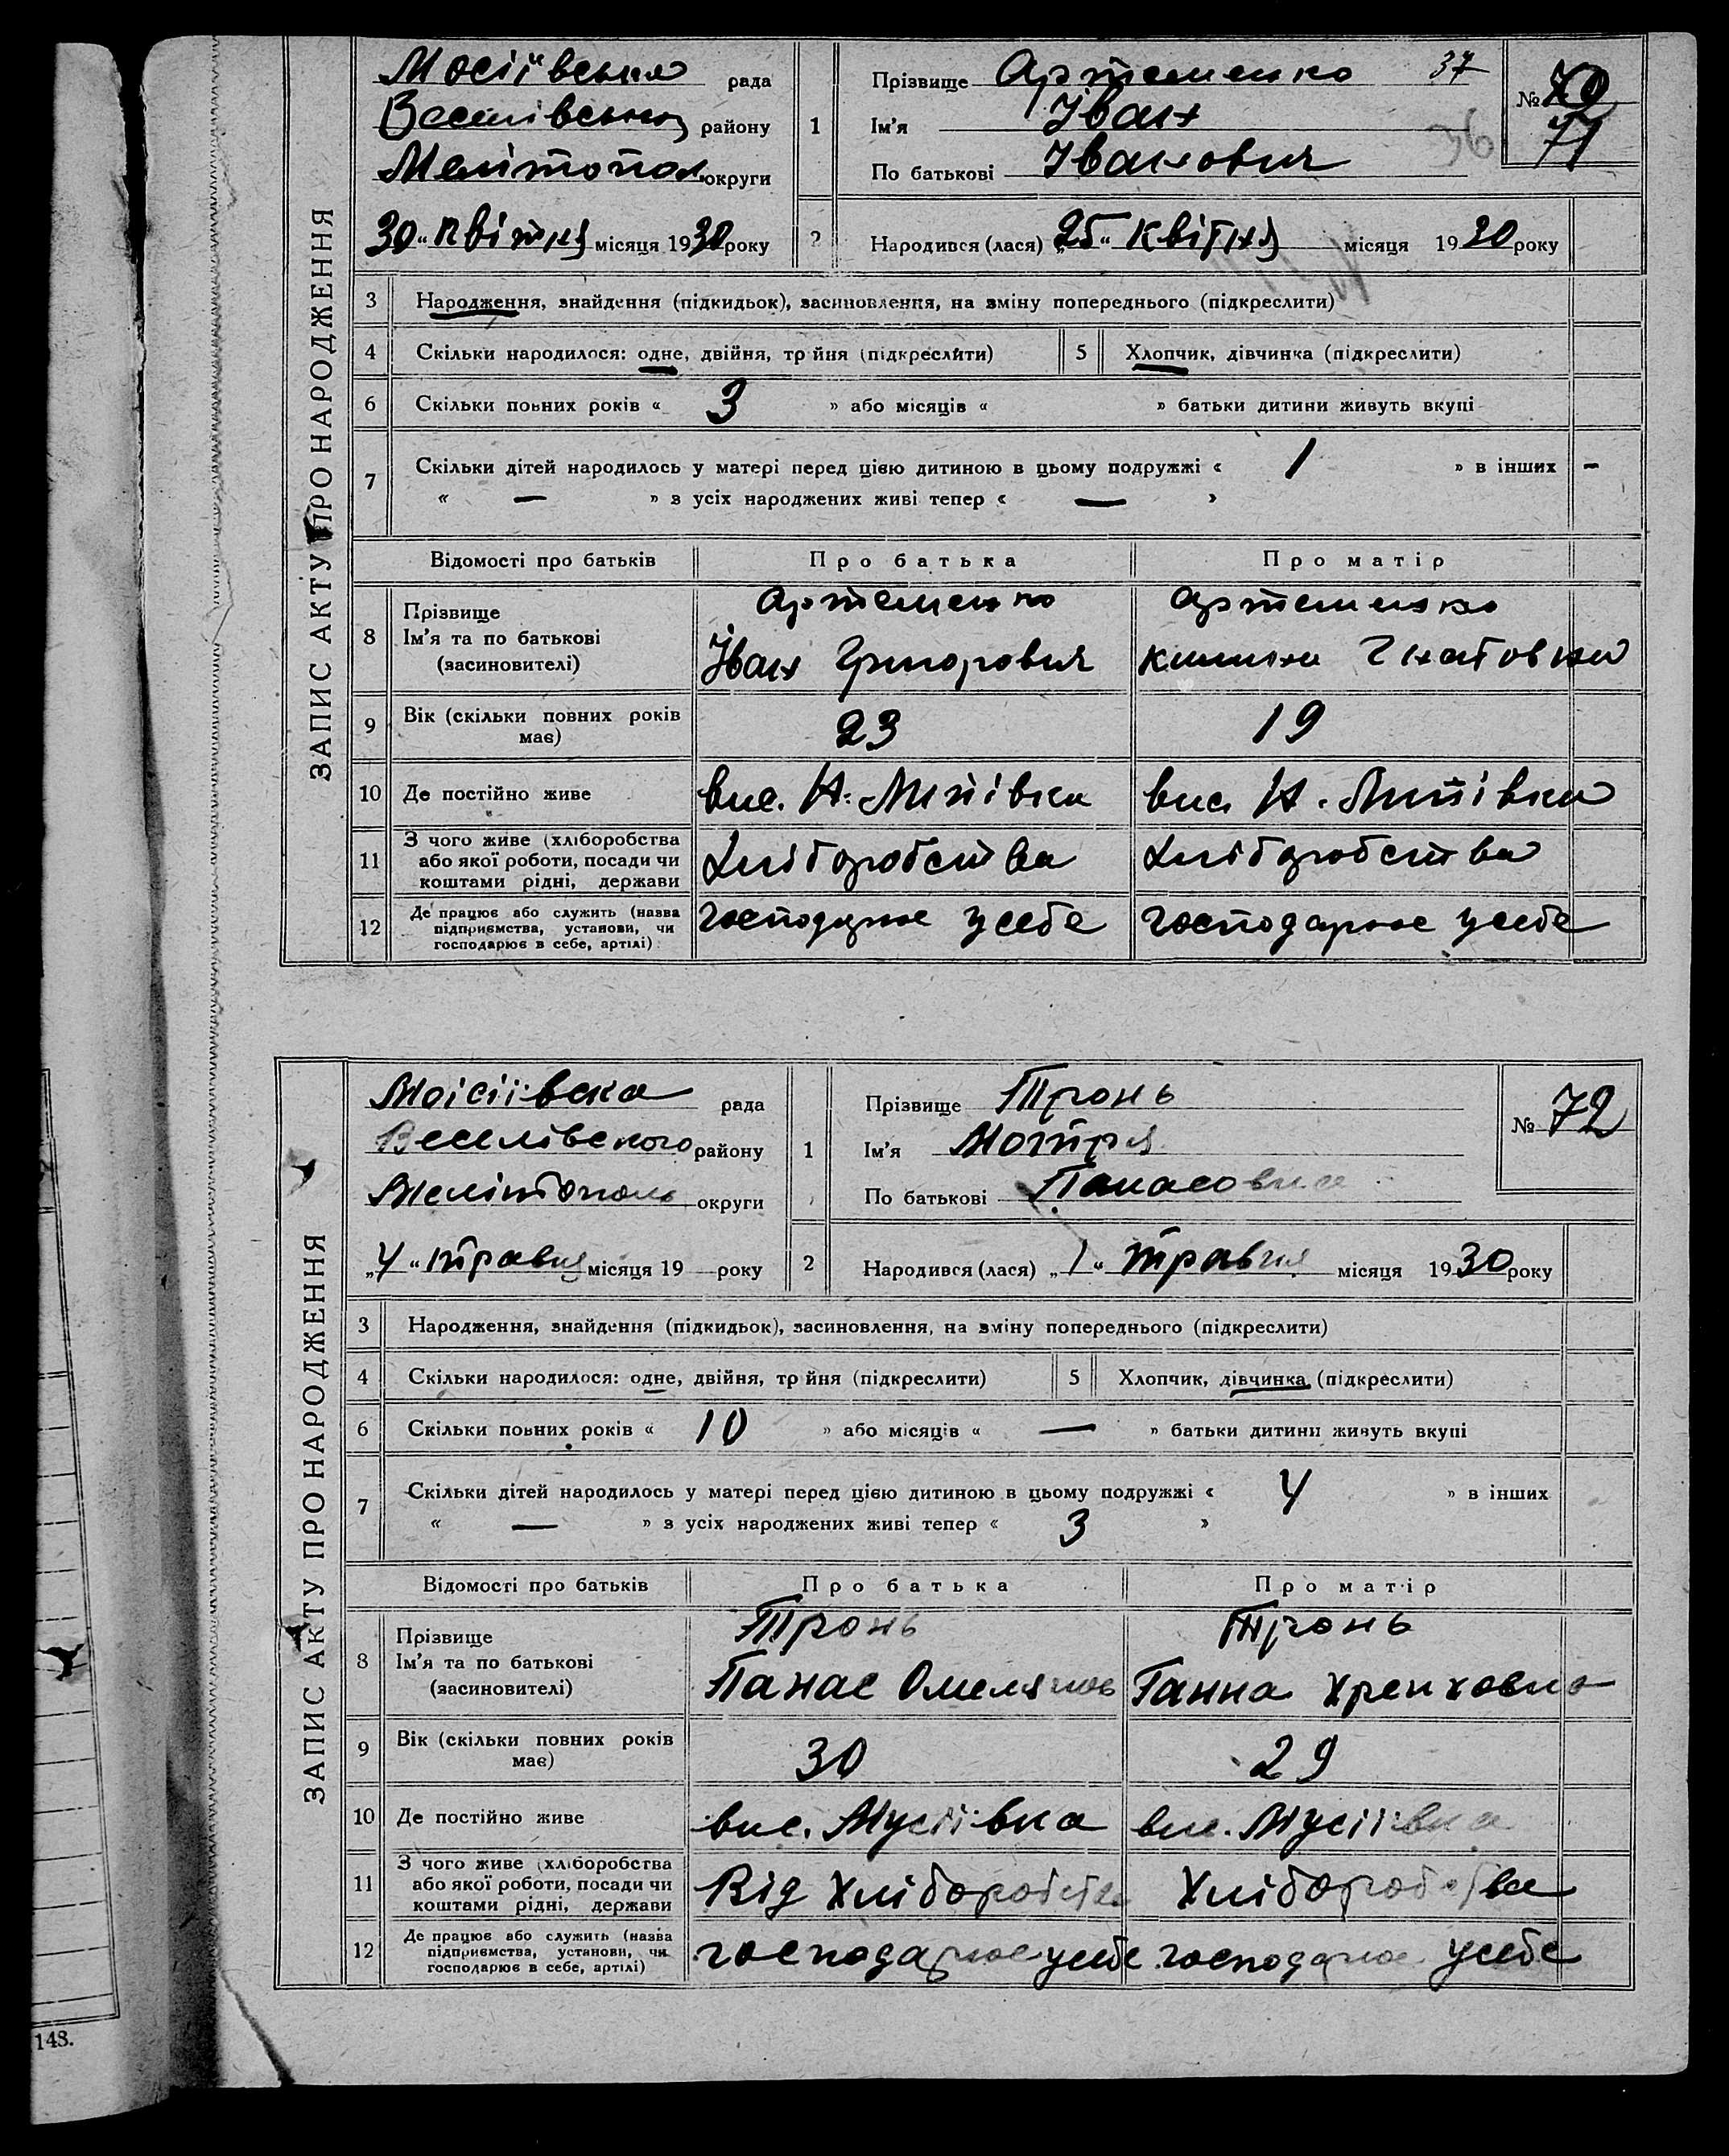 ЗАПИС АКТУ ПРО НАРОДЖЕННЯ
Мосіївська рада
Веселівськ району
Мелітопол. округи
„30“ квітня місяця 1930 року
1
Прізвище Артеменко 37
Ім'я Іван
По батькові Іванович 36
№ 70
71
2 Народився (лася) „25“ квітня місяця 1930 року
3 Народження, знайдення (підкидьок), засиновлення, на зміну попереднього (підкреслити)
4 Скільки народилося: одне, двійня, тр йня (підкреслити) 5 Хлопчик, дівчинка (підкреслити)
6 Скільки повних років « 3 » або місяців « » батьки дитини живуть вкупі
7 Скільки дітей народилось у матері перед цією дитиною в цьому подружжі « 1 » в інших -
« — » з усіх народжених живі тепер « — »
Відомості про батьків Про батька Про матір
8 Прізвище Артеменко Артеменко
Ім'я та по батькові Іван Григорович Гнатовна
(засиновителі)
9 Вік (скільки повних років має) 23 19
10 Де постійно живе вис. Н. вис. Н.
11 З чого живе (хліборобства або якої роботи, посади чи коштами рідні, держави Хліборобства Хліборобства
12 Де працює або служить (назва підприємства, установи, чи господарює в себе, артілі) господарює у себе господарює у себе
ЗАПИС АКТУ ПРО НАРОДЖЕННЯ
Моісіївска рада
Веселівского району
Мелітополь округи
„4“ травня місяця 19 — року
1
Прізвище Тронь
Ім'я Мотря
По батькові Панасовна
№ 72
2 Народився (лася) „1“ травня місяця 1930 року
3 Народження, знайдення (підкидьок), засиновлення, на зміну попереднього (підкреслити)
4 Скільки народилося: одне, двійня, тр йня (підкреслити) 5 Хлопчик, дівчинка (підкреслити)
6 Скільки повних років « 10 » або місяців « — » батьки дитини живуть вкупі
7 Скільки дітей народилось у матері перед цією дитиною в цьому подружжі « 4 » в інших
« — » з усіх народжених живі тепер « 3 »
Відомості про батьків Про батька Про матір
8 Прізвище Тронь Тронь
Ім'я та по батькові Панас Ганна
(засиновителі)
9 Вік (скільки повних років має) 30 29
10 Де постійно живе вис. Мусіївка вис. Мусіївка
11 З чого живе (хліборобства або якої роботи, посади чи коштами рідні, держави Від хліборобства Хліборобства
12 Де працює або служить (назва підприємства, установи, чи господарює в себе, артілі) господарює у себе господарює у себе
143.